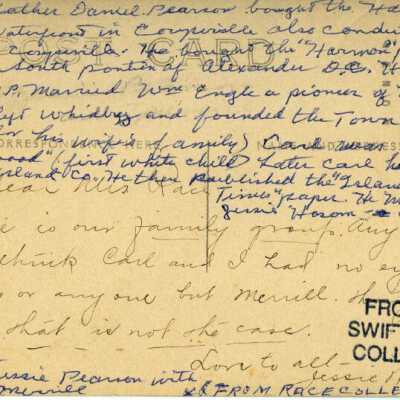 Father Daniel Pearson bought the Ha
Waterfront in Coupeville also conduc
Coupeville. He bought the "Harmon"
south portion of Alexander D.C.
POST CARD
P. Married Wm Engle a pioneer of
Whidbey and founded the Town
for his wife's family) Carl was
wood" (first white child) Later Carl
Island Co. He then published the "Island
Times" paper. He
Jessie
Dear Miss Race
is our family group. Any
think Carl and I had no
or anyone but Merrill. The
that is not the case.
Love to all —
Jessie
FRO
SWIFT
COLL
Jessie Pearson with
Merrill
FROM RACE COLLE